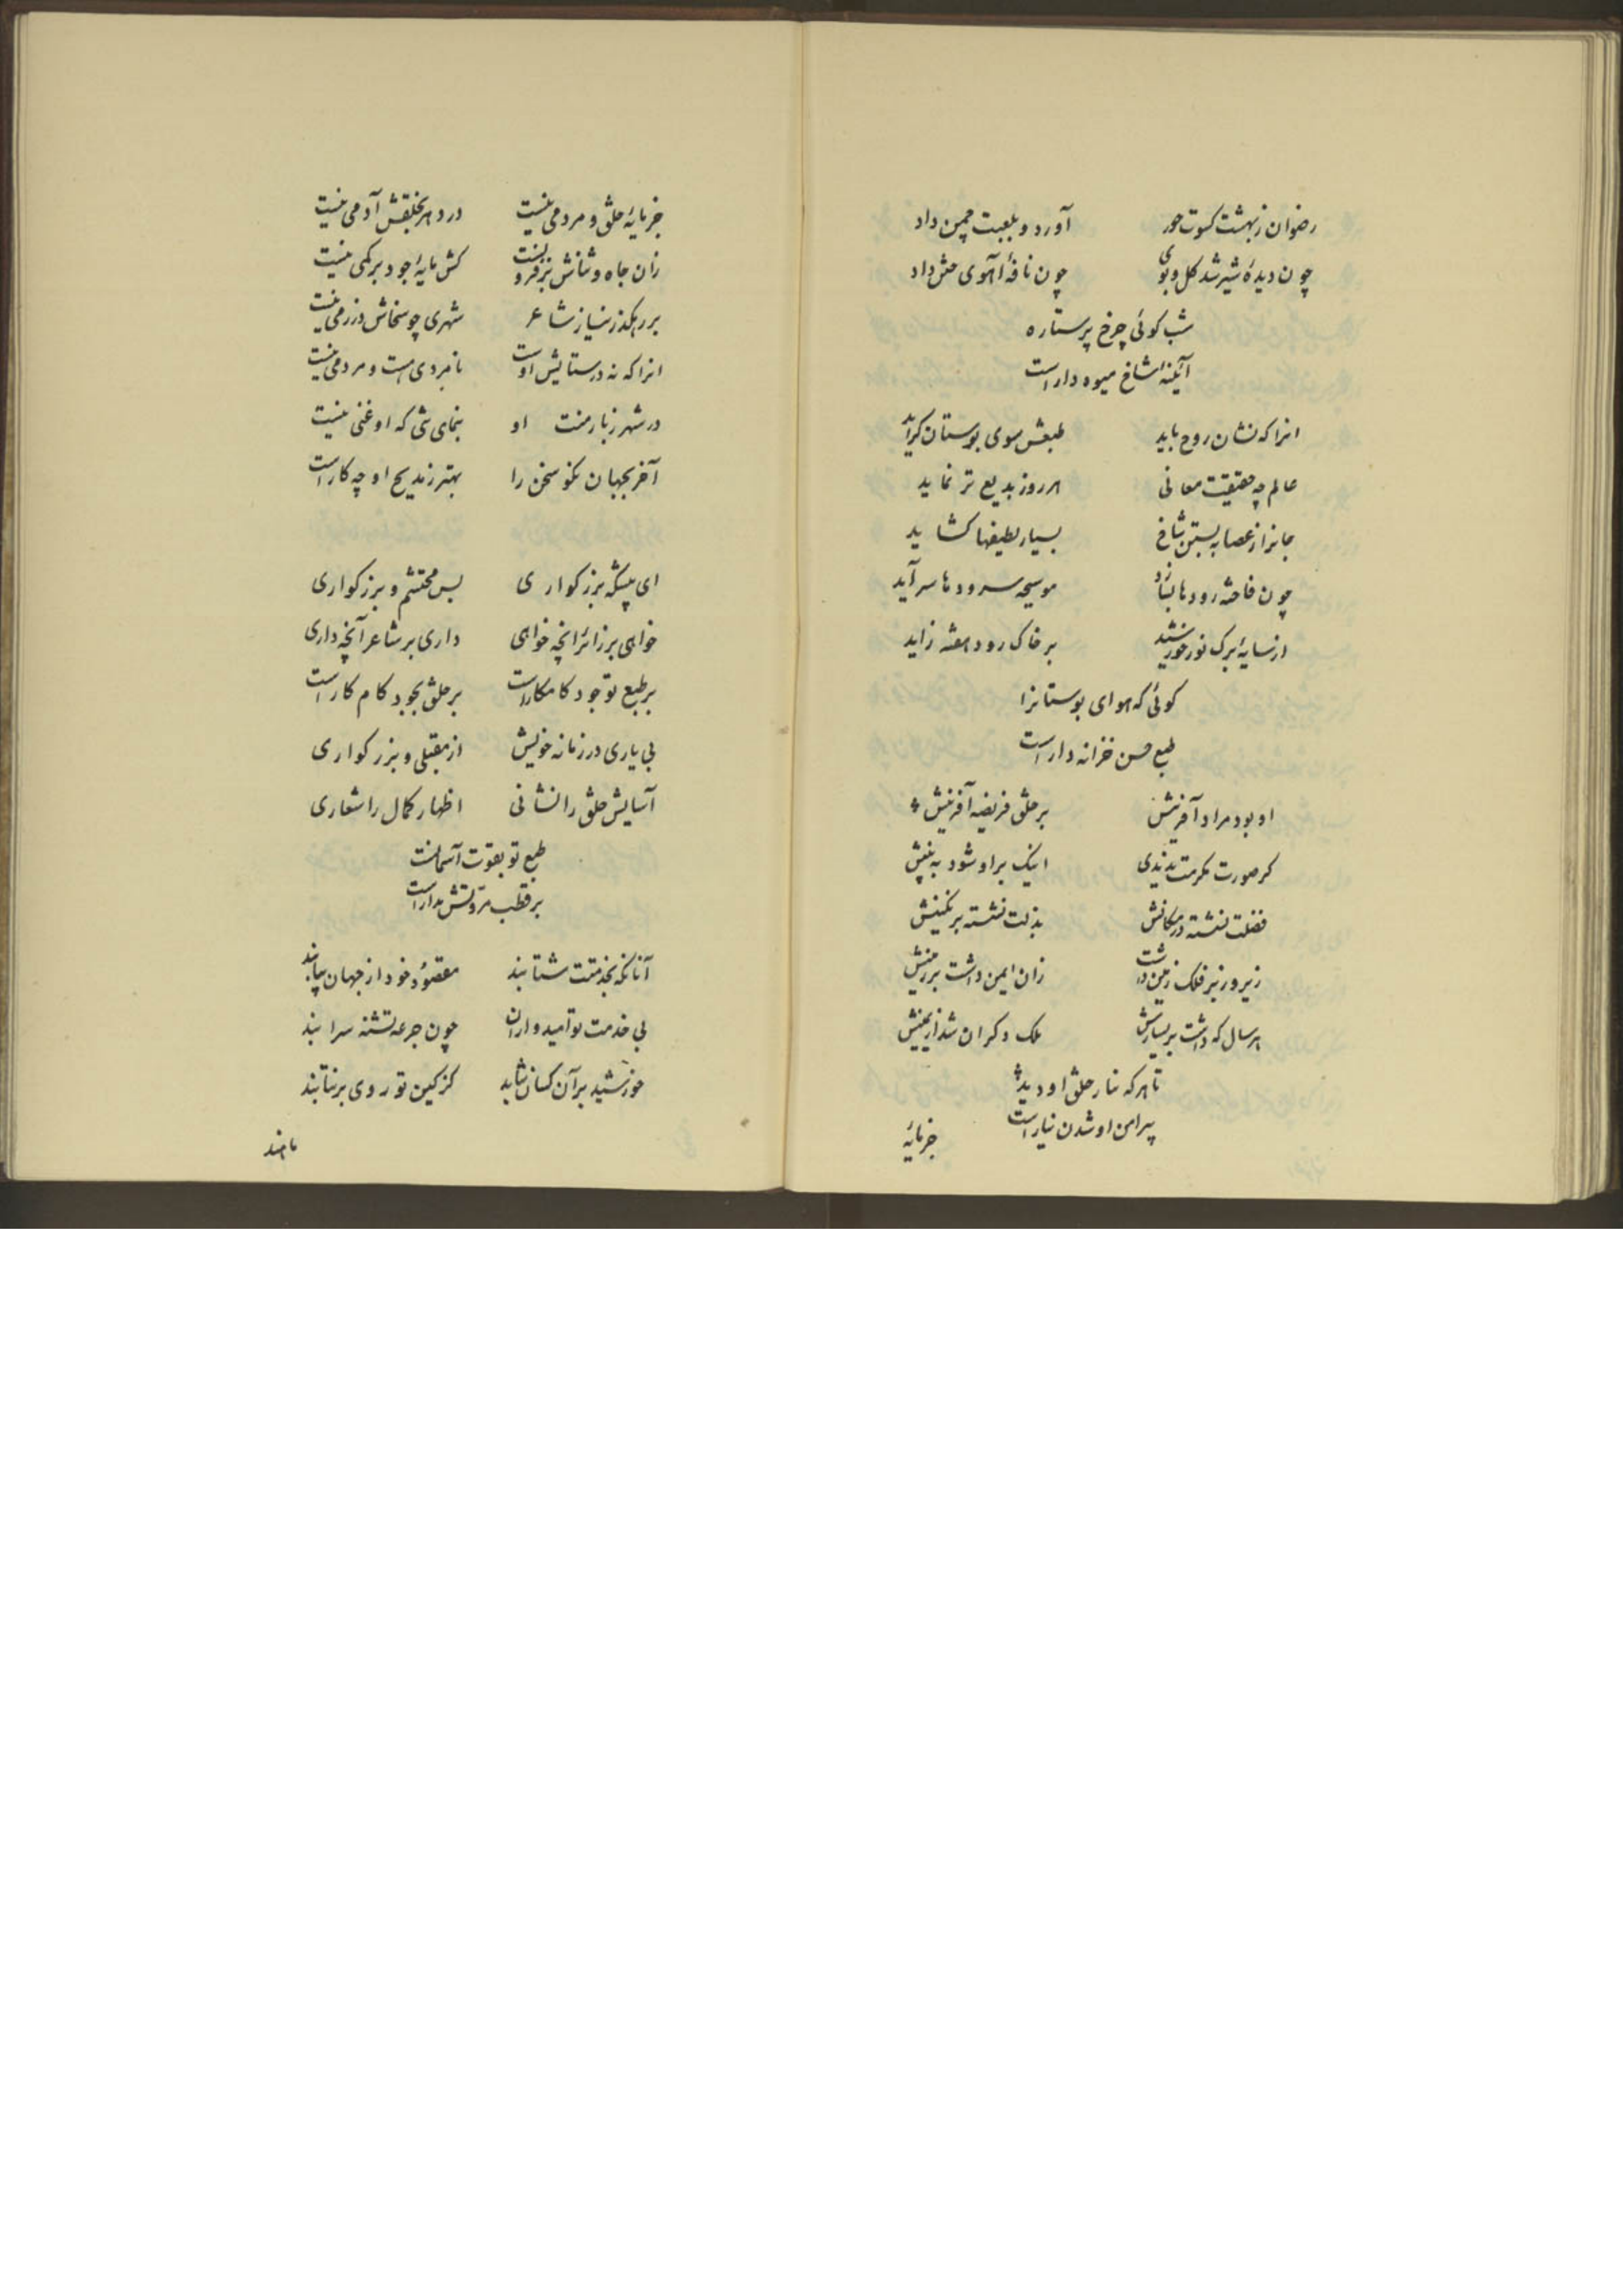 رضوان ز بهشت کسوت حور آورد و بلعبت چمن داد
چون دیدهٔ شیر شد کل و بوی چون نافهٔ آهوی ختن داد
شب کوئی چرخ پرستاره
آئینهٔ شاخ میوه دار است
انرا که نشان روح باید طبعش سوی بوستان کراید
عالم چه حقیقت معانی هر روز بدیع تر نماید
جانرا از عصابه بستن شاخ بسیار لطیفها کشاید
چون فاخته رودها بسازد موسیجه سرودها سراید
از سایهٔ برک نور خورشید بر خاک رود بنفشه زاید
کوئی که هوای بوستانرا
طبع حسن خزانه دار است
او بود مراد آفرینش بر خلق فریضه آفرینش
کر صورت مکرمت ندیدی اینک بر او شود به بینش
فضلت نشسته در مکانش بذلت نشسته بر نکینش
زیر و زبر فلک زمین داشت زان ایمن داشت بر زمینش
هر سال که داشت بر یسارش ملک دکران شد از یمینش
تا هر که نثار خلق او دید
پیرامن او شدن نیار است
جز مایهٔ
جز مایهٔ خلق و مردمی نیست در دهر بخلقش آدمی نیست
زان جاه و شانش بر فزونست کش مایهٔ جود بر کمی نیست
بر رهکذر نیاز شاعر شهری چو سخاش درزمی نیست
انرا که نه در ستایش اوست نامردی هست و مردمی نیست
در شهر ز بار منت او بنمای شی که او غنی نیست
آخر بجهان نکو سخن را بهتر ز مدیح او چه کار است
ای پیشکه بزرکواری بس محتشم و بزرکواری
خواهی بر زائر انچه خواهی داری بر شاعر آنچه داری
بر طبع تو جود کامکار است بر خلق بجود کام کار است
بی یاری در زمانه خویش از مقبلی و بزرکواری
آسایش خلق را نشانی اظهار کمال را شعاری
طبع تو بقوت آسمانست
بر قطب مروتش مدار است
آنانکه بخدمتت شتابند مقصود خود از جهان بیابند
بی خدمت تو امیدواران چون جرعه تشنه سرابند
خورشید بر آن کسان نتابد کز کین تو روی بر نتابند